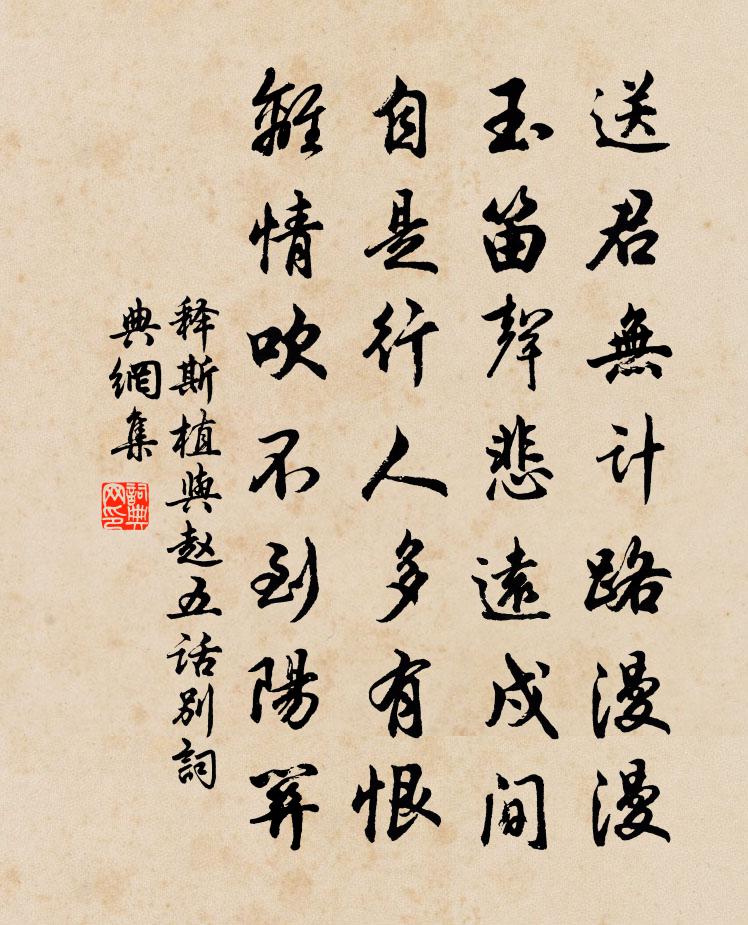 送君無計路漫漫
玉笛聲悲遠戍間
自是行人多有恨
離情吹不到陽關
释斯植與赵五話別詞
典網集
詞典
网印